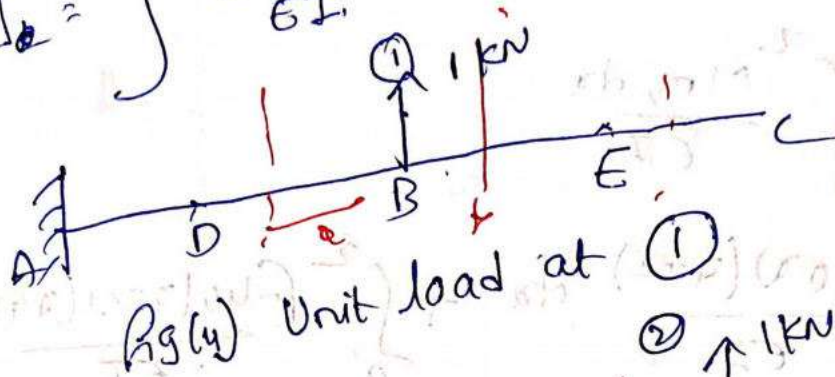 EI.
① 1 KN
A D B E C
x
Fig(4) Unit load at ①
② ↑ 1 KN